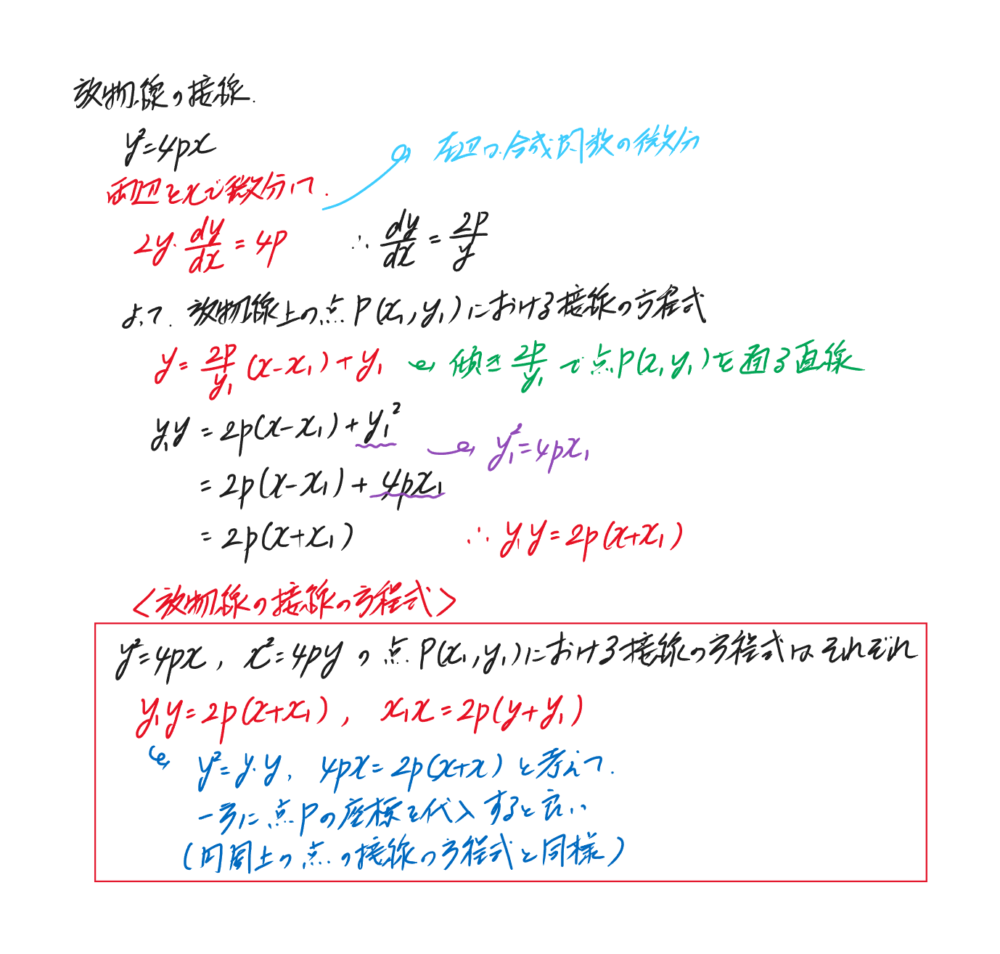 放物線の接線.
y²=4px
両辺をxで微分して.
左辺は合成関数の微分
2y・dy/dx=4p ∴dy/dx=2p/y
よって. 放物線上の点P(x₁,y₁)における接線の方程式
y=2p/y₁(x-x₁)+y₁ ← 傾き2p/y₁で点P(x,y₁)を通る直線
y₁y=2p(x-x₁)+y₁² → y₁²=4px₁
=2p(x-x₁)+4px₁
=2p(x+x₁) ∴y₁y=2p(x+x₁)
<放物線の接線の方程式>
y²=4px, x²=4pyの点P(x₁,y₁)における接線の方程式はそれぞれ
y₁y=2p(x+x₁), x₁x=2p(y+y₁)
y²=y・y, 4px=2p(x+x)と考えて.
一方に点Pの座標を代入すると良い
(円周上の点の接線の方程式と同様)